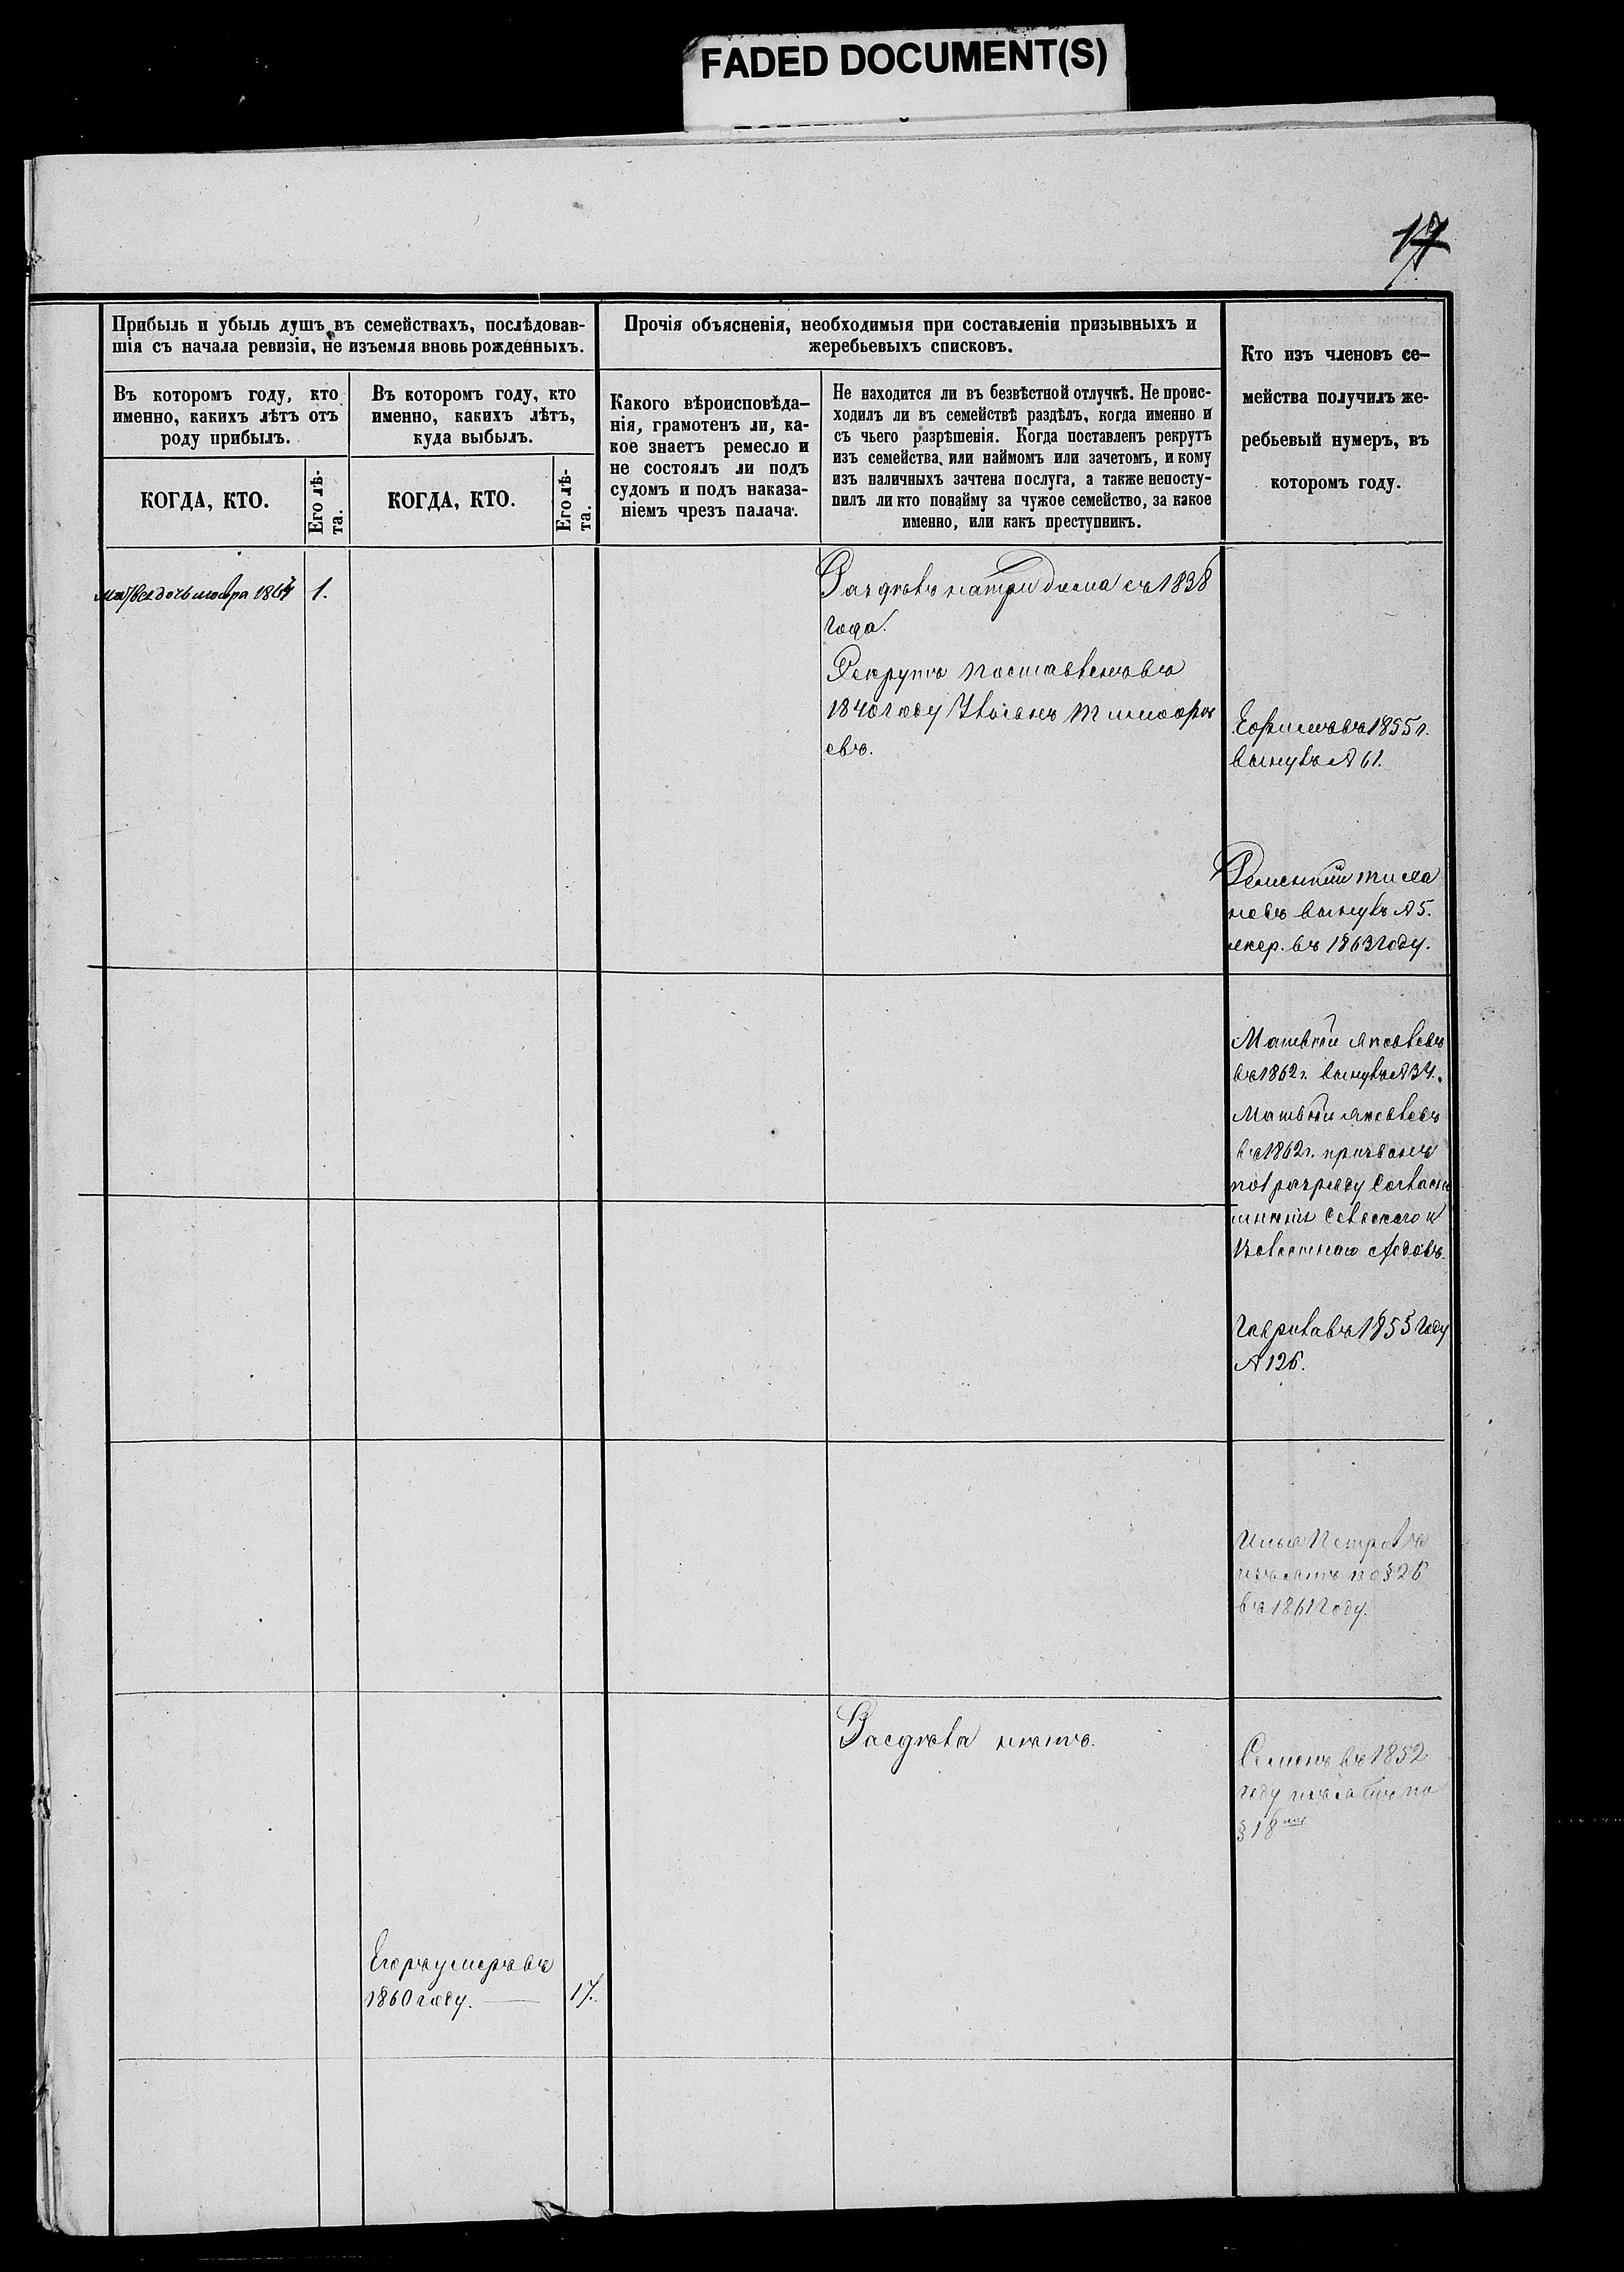 FADED DOCUMENT(S)
17
Прибыль и убыль душъ въ семействахъ, послѣдовав-
шія съ начала ревизіи, не изъемля вновь рожденныхъ.
Въ которомъ году, кто
именно, какихъ лѣтъ отъ
роду прибылъ.
КОГДА, КТО.
Его лѣ-
та.
Въ которомъ году, кто
именно, какихъ лѣтъ,
куда выбылъ.
КОГДА, КТО.
Его лѣ-
та.
Прочія объясненія, необходимыя при составленіи призывныхъ и
жеребьевыхъ списковъ.
Какого вѣроисповѣда-
нія, грамотенъ ли, ка-
кое знаетъ ремесло и
не состоялъ ли подъ
судомъ и подъ наказа-
ніемъ чрезъ палача.
Не находится ли въ безвѣстной отлучкѣ. Не проис-
ходилъ ли въ семействѣ раздѣлъ, когда именно и
съ чьего разрѣшенія. Когда поставленъ рекрутъ
изъ семейства, или наймомъ или зачетомъ, и кому
изъ наличныхъ зачтена послуга, а также непосту-
пилъ ли кто понайму за чужое семейство, за какое
именно, или какъ преступникъ.
Кто изъ членовъ се-
мейства получилъ же-
ребьевый нумеръ, въ
которомъ году.
1864
1.
Раздѣлъ на три дома съ 1838
года.
Рекрутъ поставленъ въ
1840 году Тимофе
евъ.
Ефимъ въ 1855 г.
вынулъ № 61.
вынулъ № 5.
жер. въ 1863 году.
Матвѣй Яковлевъ
въ 1862 г. вынулъ № 34.
Матвѣй Яковлевъ
въ 1862 г. призванъ
по 1 разряду
мнѣнія Сельскаго и
Волостнаго
Гаврила въ 1855 году
№ 126.
Илья Петровъ
изъятъ по § 26
въ 1861 году.
Раздѣла нѣтъ.
Семенъ въ 1852
году изъятъ по
§ 18
Егоръ умеръ въ
1860 году.
17.